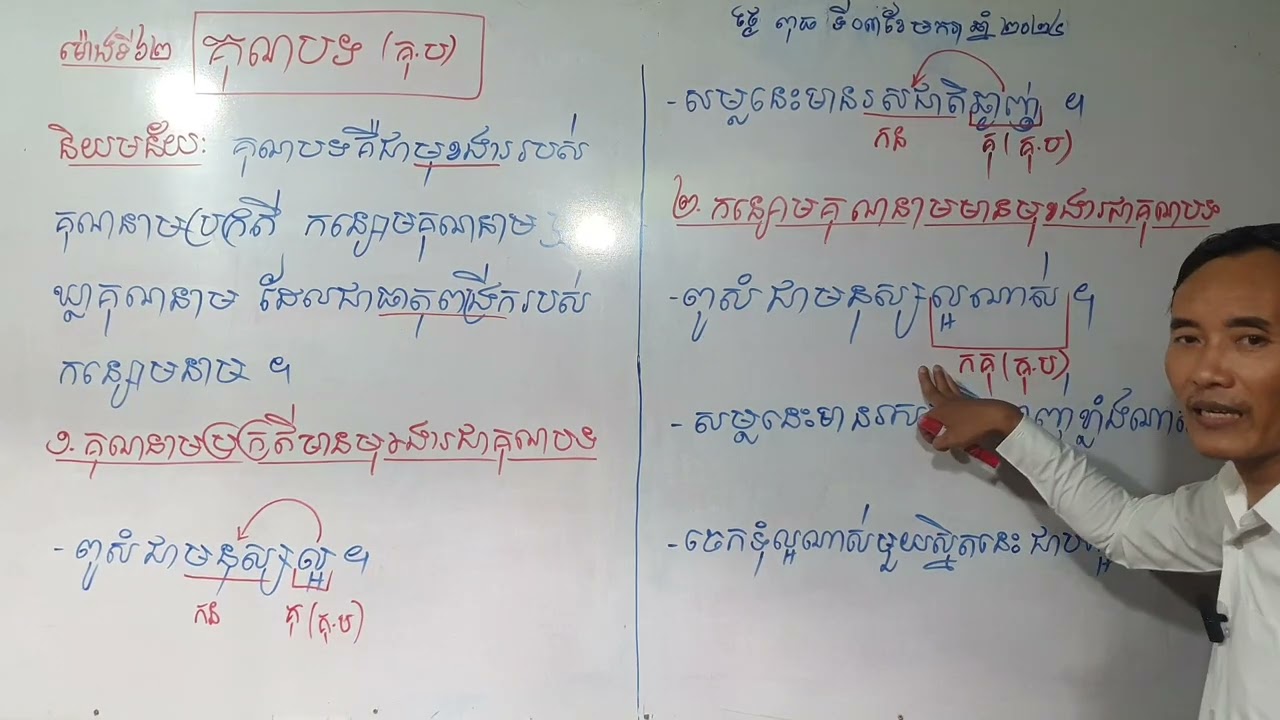 ម៉ោងទី៦២
គុណបទ (គុ.ប)
និយមន័យ: គុណបទគឺជាមុខងាររបស់
គុណនាមប្រក្រតី កន្សោមគុណនាម
ឃ្លាគុណនាម ដែលជាធាតុពង្រីករបស់
កន្សោមនាម ។
១. គុណនាមប្រក្រតីមានមុខងារជាគុណបទ
- ពូសំ ជាមនុស្សល្អ ។
កន គុ (គុ.ប)
ថ្ងៃ ពុធ ទី០៣ខែមករាឆ្នាំ ២០២៤
- សម្លនេះមានរសជាតិឆ្ងាញ់ ។
កន គុ (គុ.ប)
២. កន្សោមគុណនាមមានមុខងារជាគុណបទ
- ពូសំ ជាមនុស្សល្អណាស់ ។
កគុ (គុ.ប)
- សម្លនេះមានរស ខ្លាំងណាស់
- ចេកទុំល្អណាស់មួយស្និតនេះ ជា